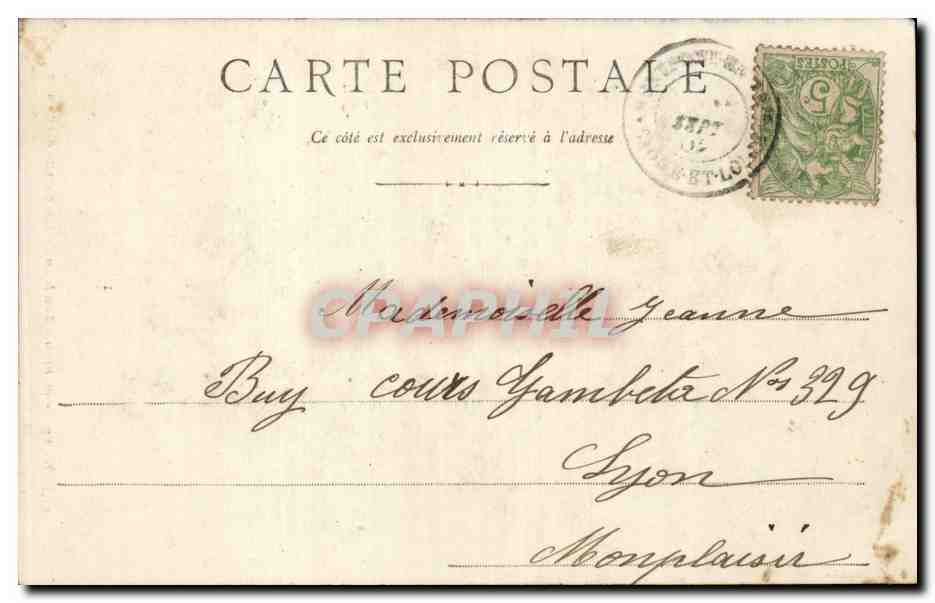 CARTE POSTALE
Ce côté est exclusivement réservé à l'adresse
SEPT
ET-LOI
POSTES
5
CPAPHIL
Mademoiselle Jeanne
Buy cours Gambeta Nos 329
Lyon
Monplaisir